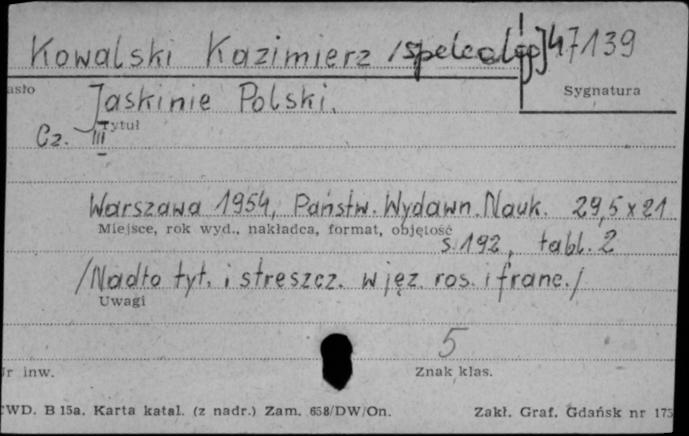 Kowalski Kazimierz /speleolog/ 47139
asło Sygnatura
Jaskinie Polski.
Tytuł
Cz. III
Warszawa 1954, Państw. Wydawn. Nauk. 29,5 x 21
Miejsce, rok wyd., nakładca, format, objętość
s. 192, tabl. 2
/Nadto tyt. i streszcz. w jęz. ros. i franc./
Uwagi
5
Nr inw. Znak klas.
CWD. B 15a. Karta katal. (z nadr.) Zam. 658/DW/On. Zakł. Graf. Gdańsk nr 175